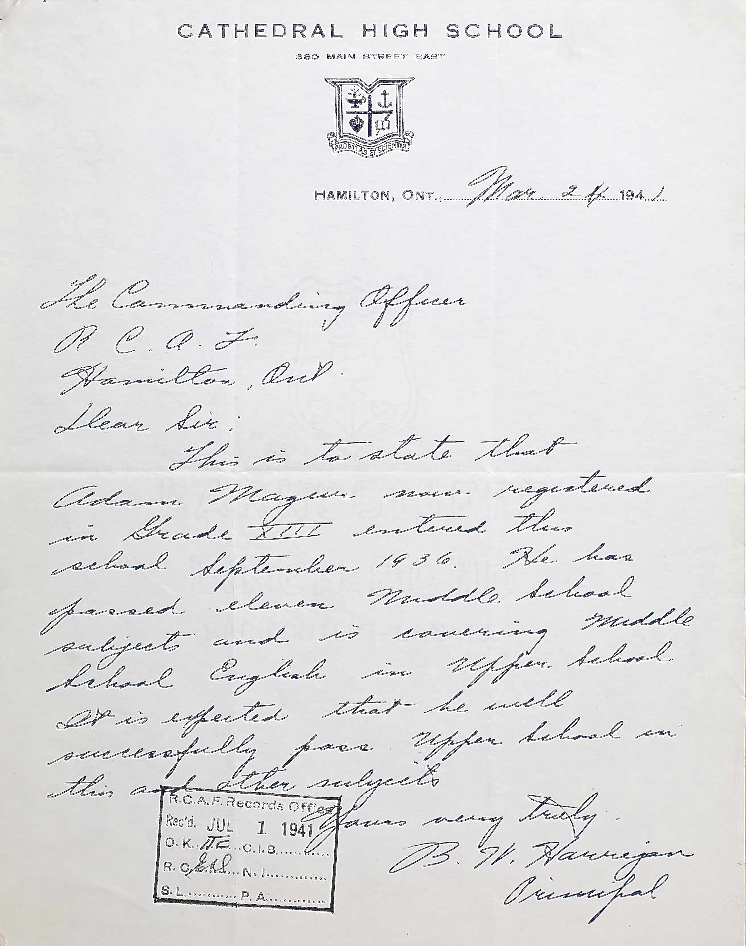 CATHEDRAL HIGH SCHOOL
380 MAIN STREET EAST
HAMILTON, ONT. Mar. 24 1941
The Commanding Officer
R C. A. F.
Hamilton, Ont.
Dear Sir:
This is to state that
Adam Mazur now registered
in Grade XIII entered this
school September 1936. He has
passed eleven Middle School
subjects and is covering Middle
School English in Upper School.
It is expected that he will
successfully pass Upper School in
this and other subjects
Yours very truly.
B. W. Harrigan
Principal
R.C.A.F. Records Office
Rec'd. JUL 1 1941
O.K. C.I.B.
R.C. N.I.
S.L. P.A.